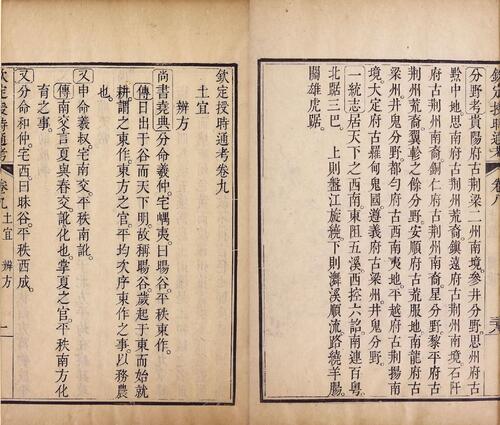 分野考貴陽府古荆梁二州南境。參井分野。思州府古
黔中地。思南府古荆州荒裔。鎮遠府古荆州南境。石阡
府古荆州南裔。銅仁府古荆州南裔星分野。黎平府古
荆州荒裔。翼軫之餘分野。安順府古荒服地。南龍府古
梁州井鬼分野。都勻府古西南夷地。平越府古荆揚南
境。大定府古羅甸鬼國。遵義府古梁州。井鬼分野。
一統志居天下之西南。東阻五溪。西控六詔。南連百粤。
北踞三巴。上則盤江旋繞。下則潕溪順流。路繞羊腸。
關雄虎踞。
欽定授時通考卷九
土宜
辨方
尚書堯典分命羲仲。宅嵎夷。曰暘谷。平秩東作。
傳日出于谷而天下明。故稱暘谷。歲起于東而始就
耕。謂之東作。東方之官。平均次序東作之事。以務農
也。
又申命羲叔。宅南交。平秩南訛。
傳南交。言夏與春交。訛化也。掌夏之官。平秩南方化
育之事。
又分命和仲。宅西。曰昧谷。平秩西成。
欽定授時通考 卷九 土宜 辨方 一